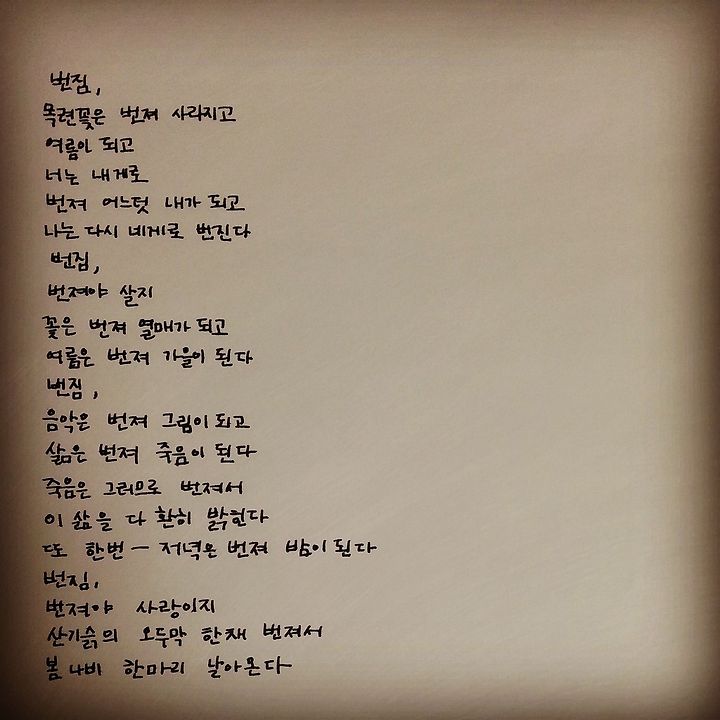 번짐,
목련꽃은 번져 사라지고
여름이 되고
너는 내게로
번져 어느덧 내가 되고
나는 다시 네게로 번진다
번짐,
번져야 살지
꽃은 번져 열매가 되고
여름은 번져 가을이 된다
번짐,
음악은 번져 그림이 되고
삶은 번져 죽음이 된다
죽음은 그러므로 번져서
이 삶을 다 환히 밝힌다
또 한번 - 저녁은 번져 밤이 된다
번짐,
번져야 사랑이지
산기슭의 오두막 한채 번져서
봄 나비 한마리 날아온다